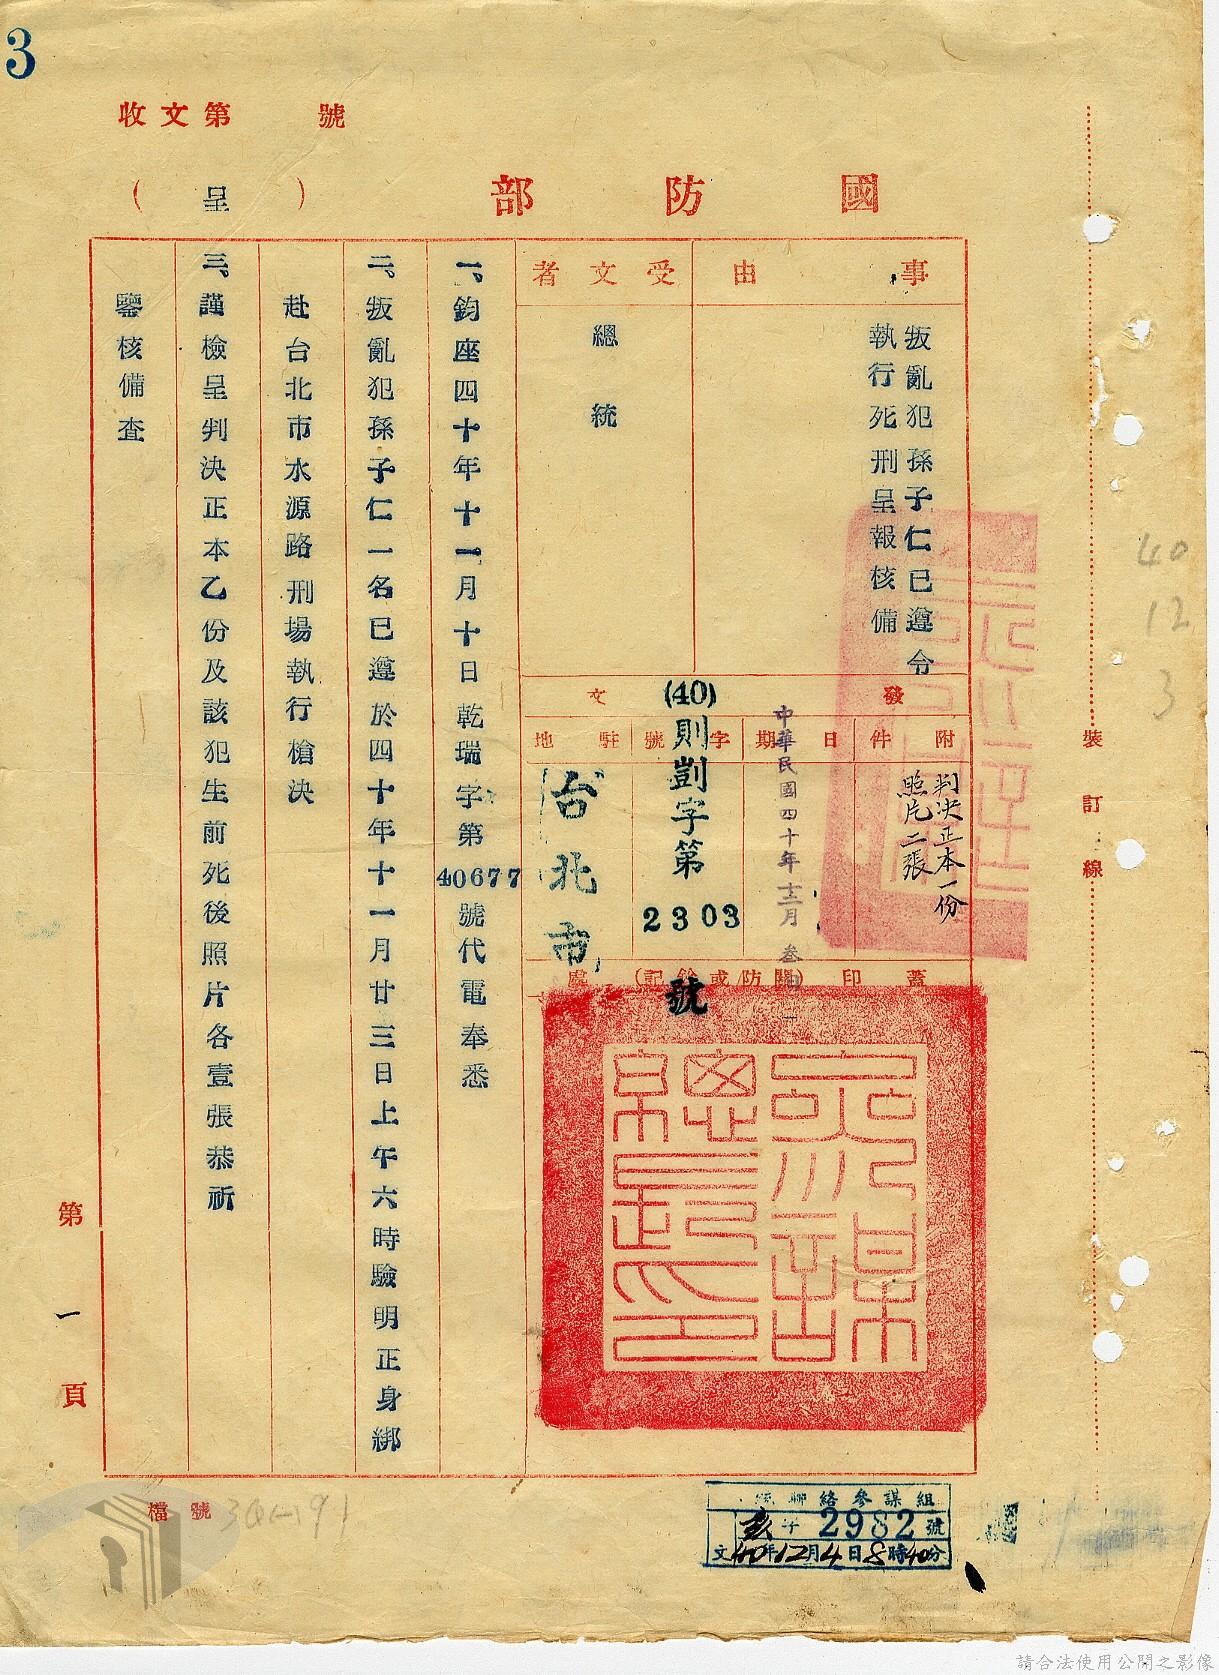 3
收文第　號
國防部
（呈）
事由
叛亂犯孫子仁已遵令
執行死刑呈報核備
受文者
總統
發文
附件
判決正本一份
照片二張
日期
中華民國四十年十二月叁日
字號
(40)則剴字第
2303
號
駐地
台北市
蓋印(關防或鈐記)處
一、鈞座四十年十一月十日乾瑞字第40677號代電奉悉
二、叛亂犯孫子仁一名已遵於四十年十一月廿三日上午六時驗明正身綁
赴台北市水源路刑場執行槍決
三、謹檢呈判決正本乙份及該犯生前死後照片各壹張恭祈
鑒核備查
第一頁
裝訂線
40
12
3
檔號
聯絡參謀組
字2982號
文40年12月4日8時40分
請合法使用公開之影像